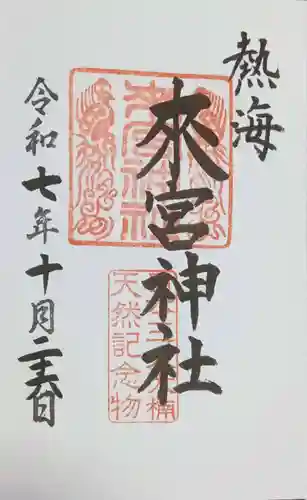 熱海
來宮神社
天然記念物
令和七年十月二十六日